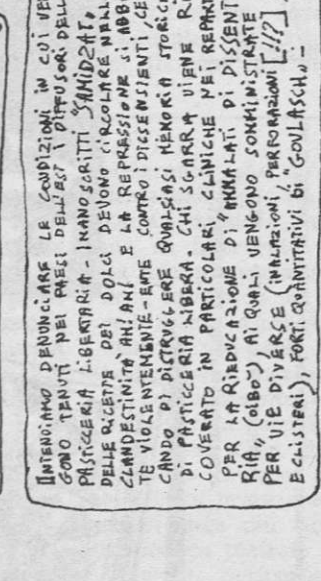 INTENDIAMO DENUNCIARE LE CONDIZIONI IN CUI VE
GONO TENUTI NEI PAESI DELL'EST I DIFFUSORI DELL
PASTICCERIA LIBERTARIA - I MANOSCRITTI "SAMIDZAT"
DELLE RICETTE DEI DOLCI DEVONO CIRCOLARE NELL
CLANDESTINITÀ E LA REPRESSIONE SI ABB
TE VIOLENTEMENTE-ENTE CONTRO I DISSENSIENTI, CE
CANDO DI DISTRUGGERE QUALSIASI MEMORIA STORIC
DI PASTICCERIA LIBERA. CHI SGARRA VIENE RI
COVERATO IN PARTICOLARI CLINICHE NEI REPAR
PER LA RIEDUCAZIONE DI "AMMALATI DI DISSENT
RIA" (OIBO'), AI QUALI VENGONO SOMMINISTRATE
PER VIE DIVERSE (INALAZIONI, PERFORAZIONI [!!?]
E CLISTERI), FORTI QUANTITATIVI DI "GOULASCH"._